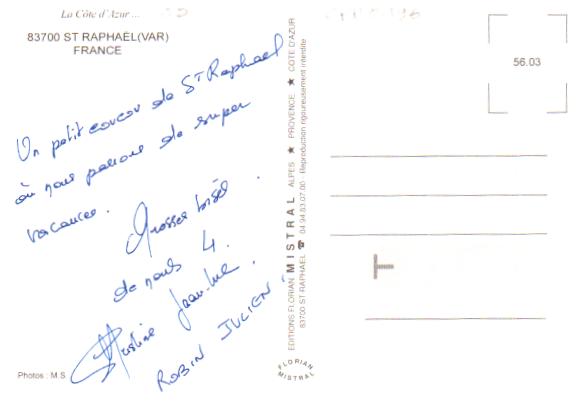 La Côte d'Azur ...
83700 ST RAPHAËL(VAR)
FRANCE
Un petit coucou de St Raphael
où nous passons de super
vacances.
Grosses bises.
de nous 4.
Christine Jean-Luc.
ROBIN JULIEN
Photos : M.S.
EDITIONS FLORIAN MISTRAL ALPES ★ PROVENCE ★ COTE D'AZUR
83700 ST RAPHAËL ☎ 04.94.83.07.00 - Reproduction rigoureusement interdite
FLORIAN
MISTRAL
56.03